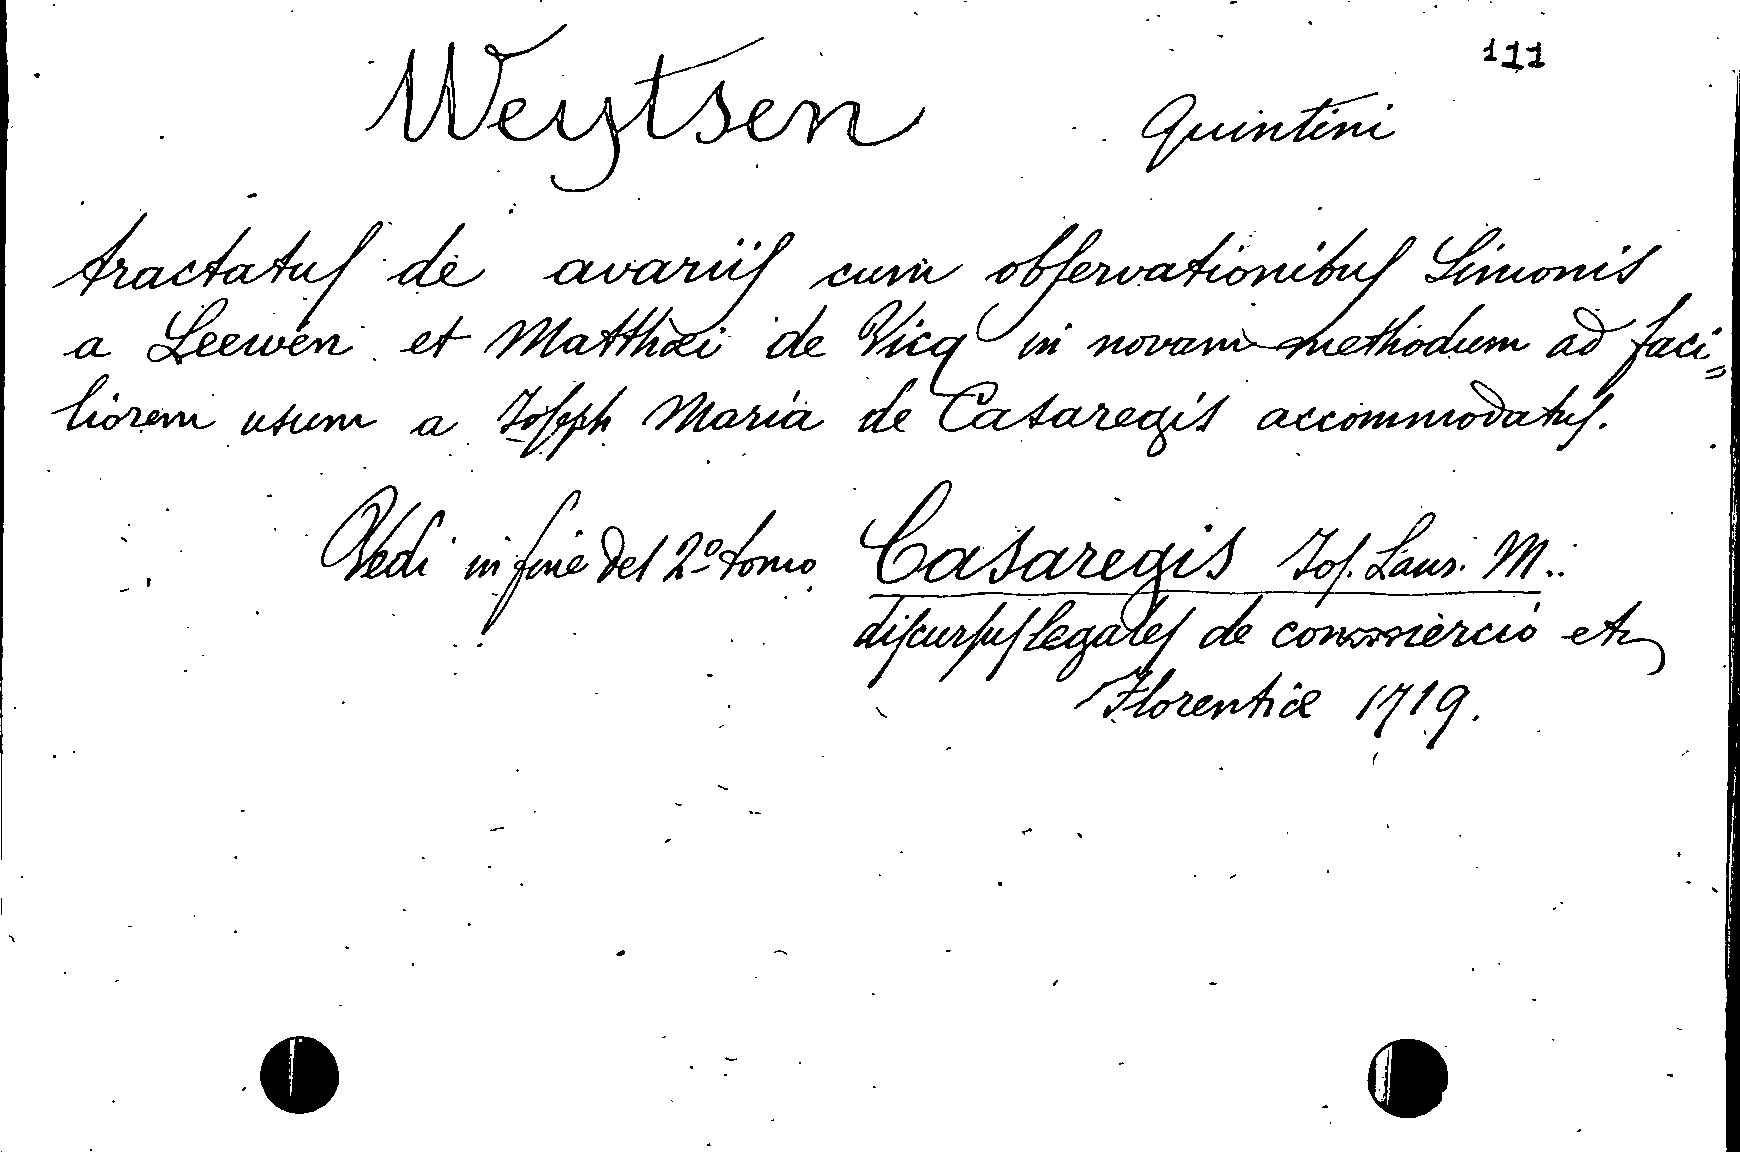 111
Weytsen Quintini
tractatuſ de avariiſ cum obſervationibuſ Simonis
a Leewen et Matthæi de Vicq in novam methodum ad faci„
liorem usum a Joſeph Maria de Casaregis accommodatuſ.
Vedi in fine del 2º tomo Casaregis Joſ. Laur. M..
diſcurſuſ legaleſ de commercio etc
Florentiæ 1719.